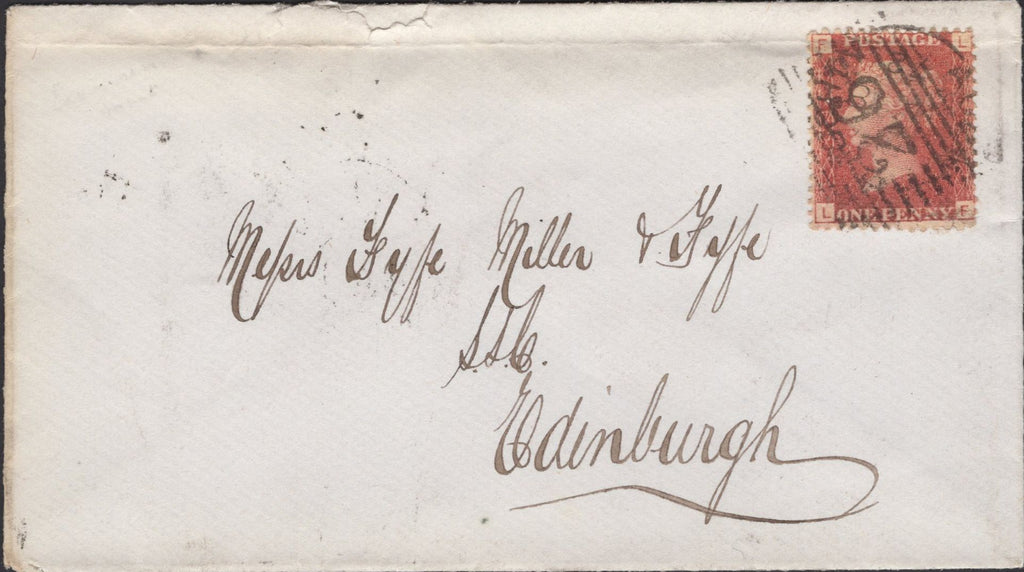 F POSTAGE L
L ONE PENNY F
Messrs Fyfe Miller & Fyfe
S.S.C.
Edinburgh